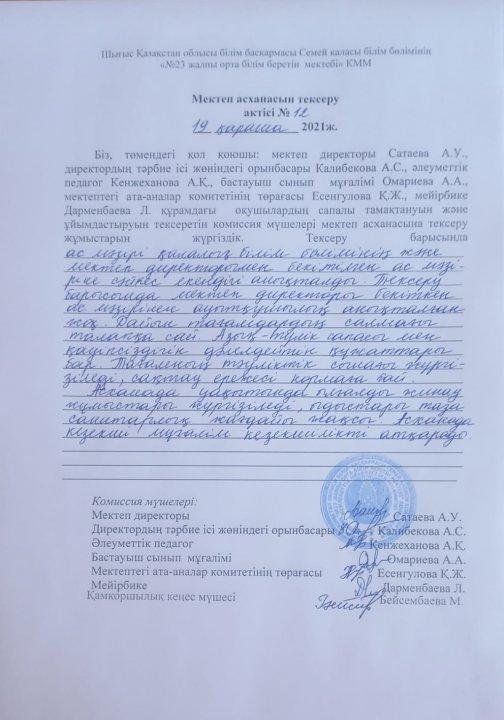 Шығыс Қазақстан облысы білім басқармасы Семей қаласы білім бөлімінің
«№23 жалпы орта білім беретін мектебі» КММ
Мектеп асханасын тексеру
актісі № 12
19 қараша 2021ж.
Біз, төмендегі қол қоюшы: мектеп директоры Сатаева А.У.,
директордың тәрбие ісі жөніндегі орынбасары Калибекова А.С., әлеуметтік
педагог Кенжеханова А.Қ., бастауыш сынып мұғалімі Омариева А.А.,
мектептегі ата-аналар комитетінің төрағасы Есенгулова Қ.Ж., мейірбике
Дарменбаева Л. құрамдағы оқушылардың сапалы тамақтануын және
ұйымдастыруын тексеретін комиссия мүшелері мектеп асханасына тексеру
жұмыстарын жүргіздік. Тексеру барысында
ас мәзірі қалалық білім бөлімінің және
мектеп директорымен бекітілген ас мәзі-
ріне сәйкес екендігі анықталды. Тексеру
барысында мектеп директоры бекіткен
ас мәзірінен ауытқушылық анықталған
жоқ. Дайын тағамдардың салмағы
талапқа сай. Азық-түлік сапасы мен
қауіпсіздігін дәлелдейтін құжаттары
бар. Тағамның тәуліктік сынағы жүргі-
зіледі, сақтау ережесі нормаға сай.
Асханада уақытында ылғалды жинау
жұмыстары жүргізіледі, ыдыстары таза
санитарлық жағдайы жақсы. Асханада
кезекші мұғалім кезекшілікті атқарады.
Комиссия мүшелері:
Мектеп директоры Сатаева А.У.
Директордың тәрбие ісі жөніндегі орынбасары Калибекова А.С.
Әлеуметтік педагог Кенжеханова А.Қ.
Бастауыш сынып мұғалімі Омариева А.А.
Мектептегі ата-аналар комитетінің төрағасы Есенгулова Қ.Ж.
Мейірбике Дарменбаева Л.
Қамқоршылық кеңес мүшесі Бейсембаева М.